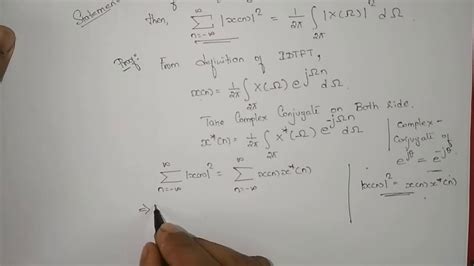 Statement:
then, ∞ Σ n=-∞ |x(n)|² = 1/2π ∫ 2π |X(Ω)|² dΩ
Proof:- From definition of IDTFT,
x(n) = 1/2π ∫ 2π X(Ω) e^jΩn dΩ.
Take Complex Conjugate on Both Side.
x*(n) = 1/2π ∫ 2π X*(-Ω) e^-jΩn dΩ
Complex-
Conjugate of
e^jθ = e^-jθ
∞ Σ n=-∞ |x(n)|² = ∞ Σ n=-∞ x(n) x*(n)
|x(n)|² = x(n) x*(n)
⇒